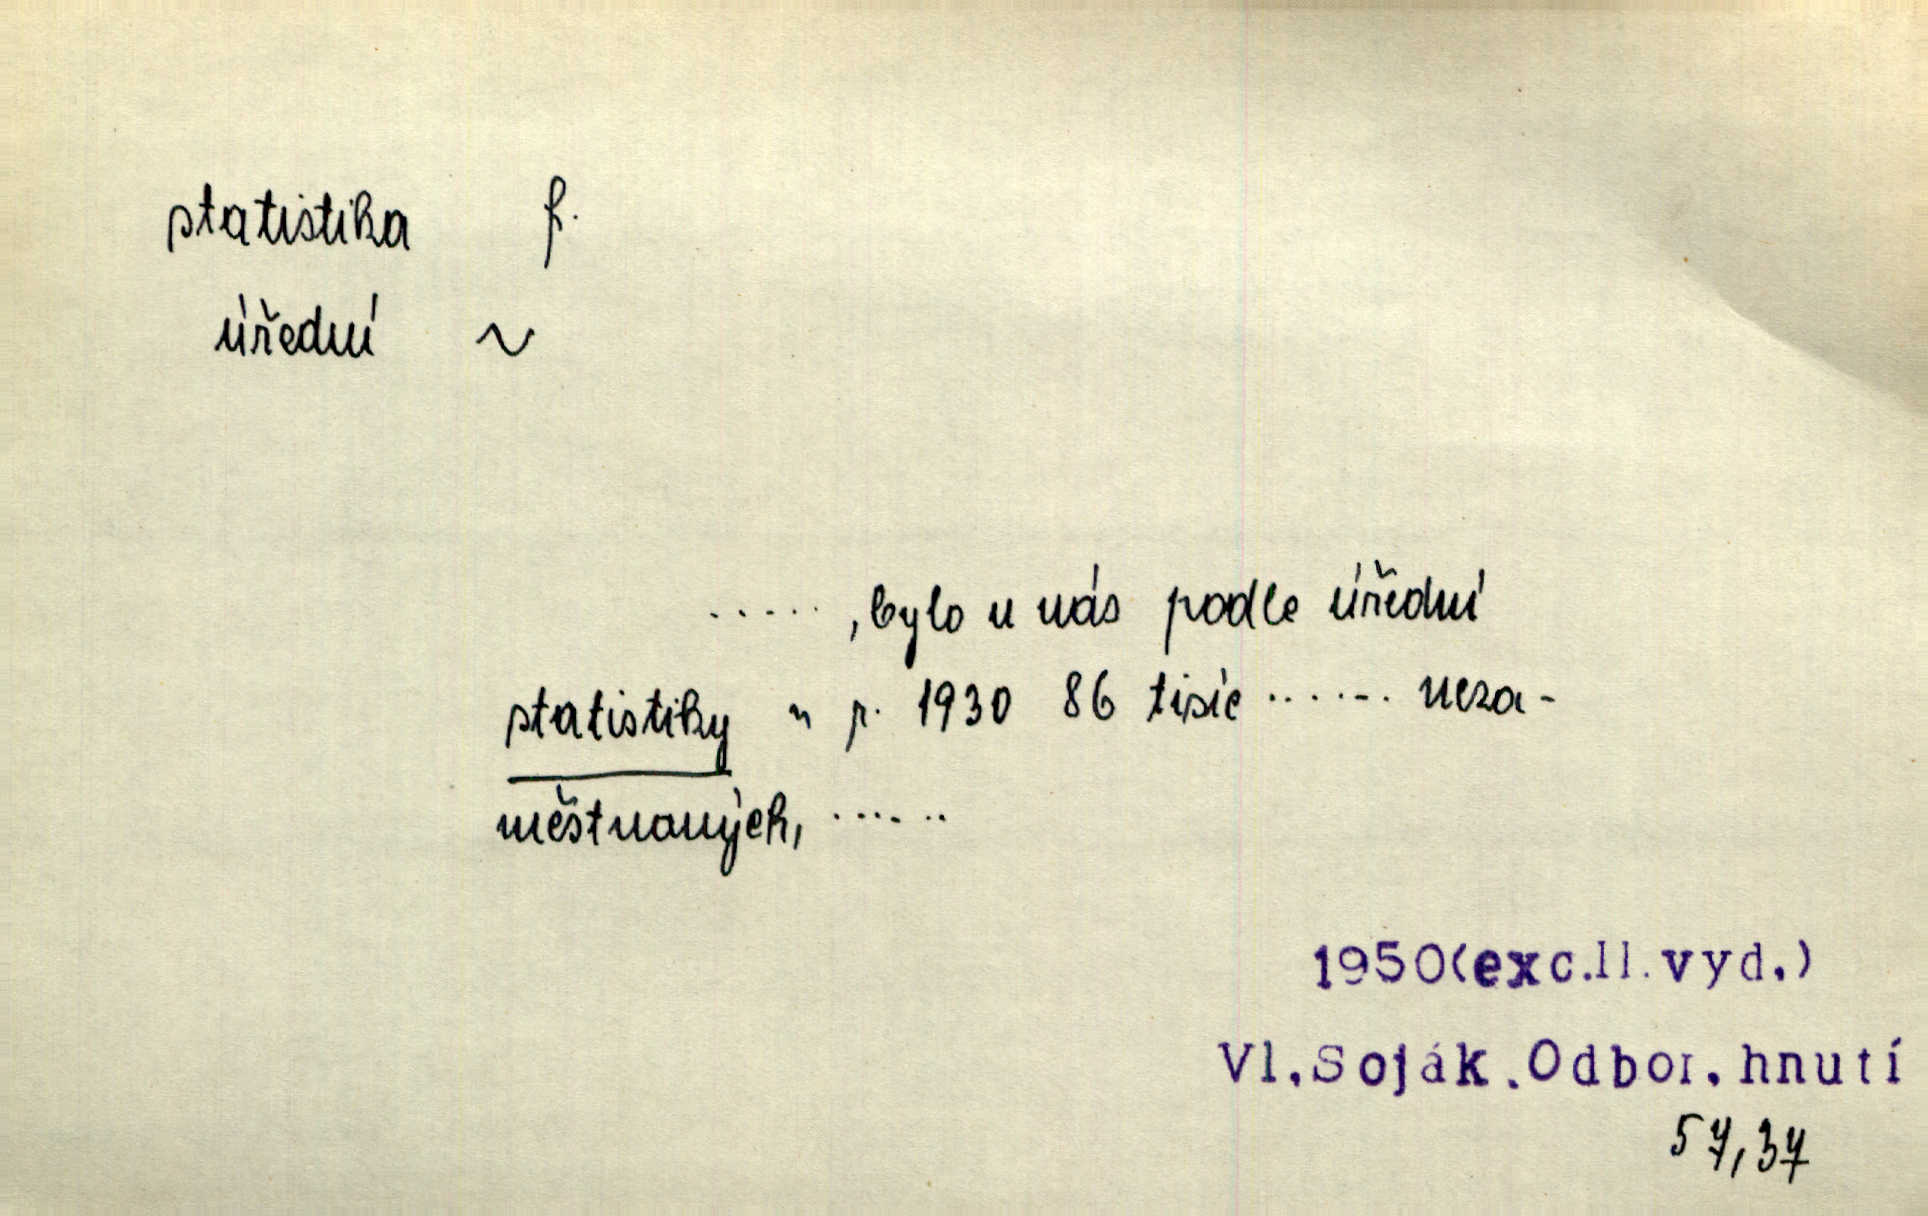 statistika f.
úřední ~
....., bylo u nás podle úřední
statistiky v r. 1930 86 tisíc ...... neza-
městnaných, ......
1950(exc.II.vyd.)
Vl.Soják.Odbor.hnutí
57,37